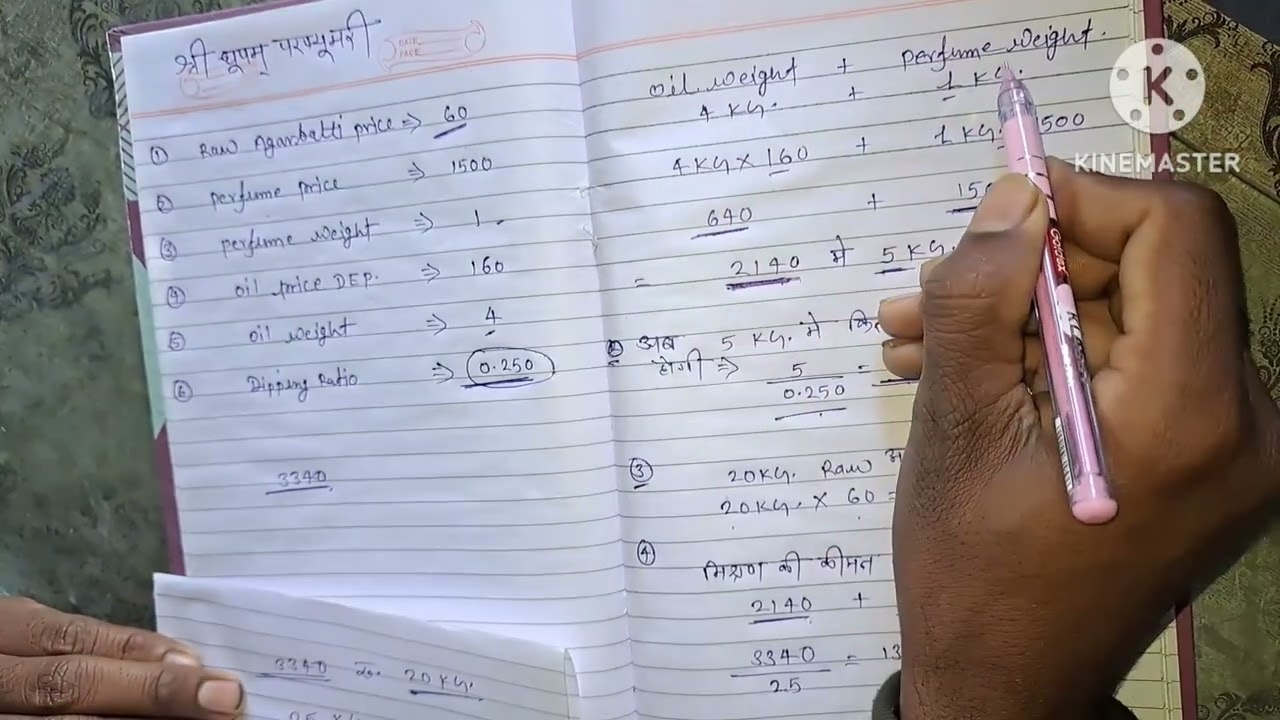 श्री धूपम् परफ्यूमरी
① Raw Agarbatti price ⇒ 60
② perfume price ⇒ 1500
③ perfume weight ⇒ 1
④ oil price DEP. ⇒ 160
⑤ oil weight ⇒ 4
⑥ Dipping Ratio ⇒ 0.250
3340
3340 रू. 20 KG.
oil weight + perfume weight.
4 KG. + 1 KG.
4 KG X 160 + 1 KG. 1500
640 + 150
= 2140 मे 5 KG.
② अब 5 KG. मे
होगी ⇒ 5 =
0.250
③ 20 KG. Raw
20 KG. X 60 =
④ मिश्रण की कीमत
2140 +
3340 = 13
25
KINEMASTER